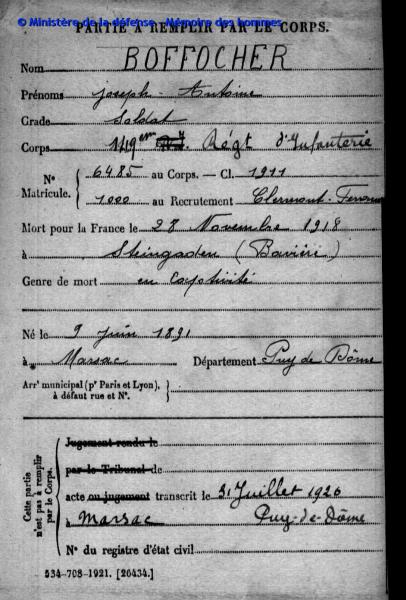 © Ministère de la défense - Mémoire des hommes
PARTIE À REMPLIR PAR LE CORPS.
Nom BOFFOCHER
Prénoms Joseph - Antoine
Grade Soldat
Corps 149eme Régt d'Infanterie
N° Matricule. { 6485 au Corps. — Cl. 1911
1000 au Recrutement Clermont-Ferrand
Mort pour la France le 28 Novembre 1918
à Steingaden (Bavière)
Genre de mort en captivité
Né le 9 Juin 1891
à Marsac Département Puy de Dôme
Arrt municipal (pr Paris et Lyon), à défaut rue et N°. {
Cette partie n'est pas à remplir par le Corps. {
Jugement rendu le
par le Tribunal de
acte ou jugement transcrit le 31 Juillet 1926
à Marsac Puy-de-Dôme
N° du registre d'état civil
534-708-1921. [26434.]